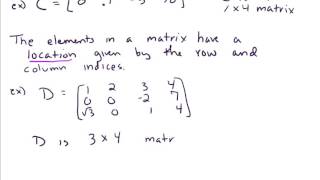 ex) C = [0 .1 -3 10]
1 x 4 matrix
The elements in a matrix have a
location given by the row and
column indices.
ex) D = [1 2 3 4
0 0 -2 7
√3 0 1 4]
D is 3 x 4 matr